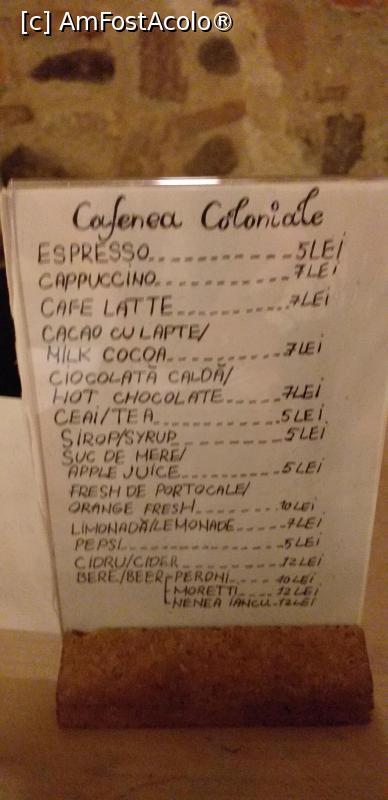 [c] AmFostAcolo®
Cafenea Coloniale
ESPRESSO 5 LEI
CAPPUCCINO 7 LEI
CAFE LATTE 7 LEI
CACAO CU LAPTE/
MILK COCOA 7 LEI
CIOCOLATĂ CALDĂ/
HOT CHOCOLATE 7 LEI
CEAI/TEA 5 LEI
SIROP/SYRUP 5 LEI
SUC DE MERE/
APPLE JUICE 5 LEI
FRESH DE PORTOCALE/
ORANGE FRESH 10 LEI
LIMONADĂ/LEMONADE 7 LEI
PEPSI 5 LEI
CIDRU/CIDER 12 LEI
BERE/BEER PERONI 10 LEI
MORETTI 12 LEI
NENEA IANCU 12 LEI